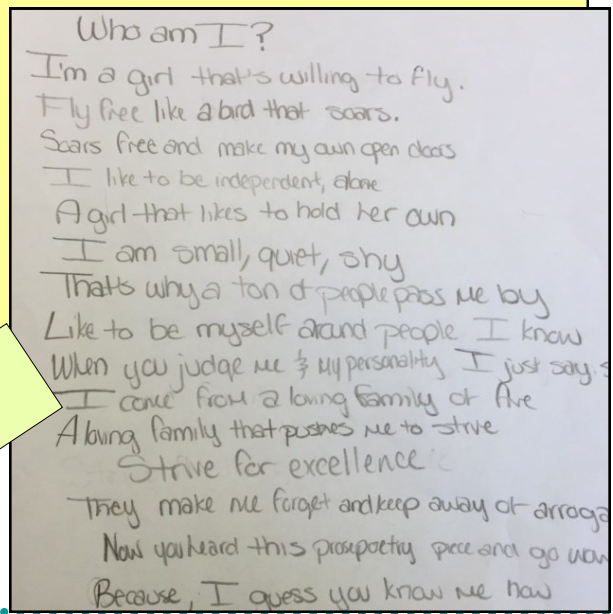 Who am I?
I'm a girl that's willing to fly.
Fly free like a bird that soars.
Soars free and make my own open doors
I like to be independent, alone
A girl that likes to hold her own
I am small, quiet, shy
That's why a ton of people pass me by
Like to be myself around people I know
When you judge me & my personality I just say
I come from a loving family of five
A loving family that pushes me to strive
Strive for excellence
They make me forget and keep away of
Now you heard this prosepoetry piece and go
Because, I guess you know me now